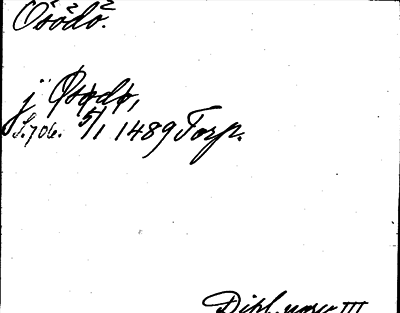 Ösödö.
j Øsødø,
S. 706. 5/1 1489 Torp.
Dipl. norv III